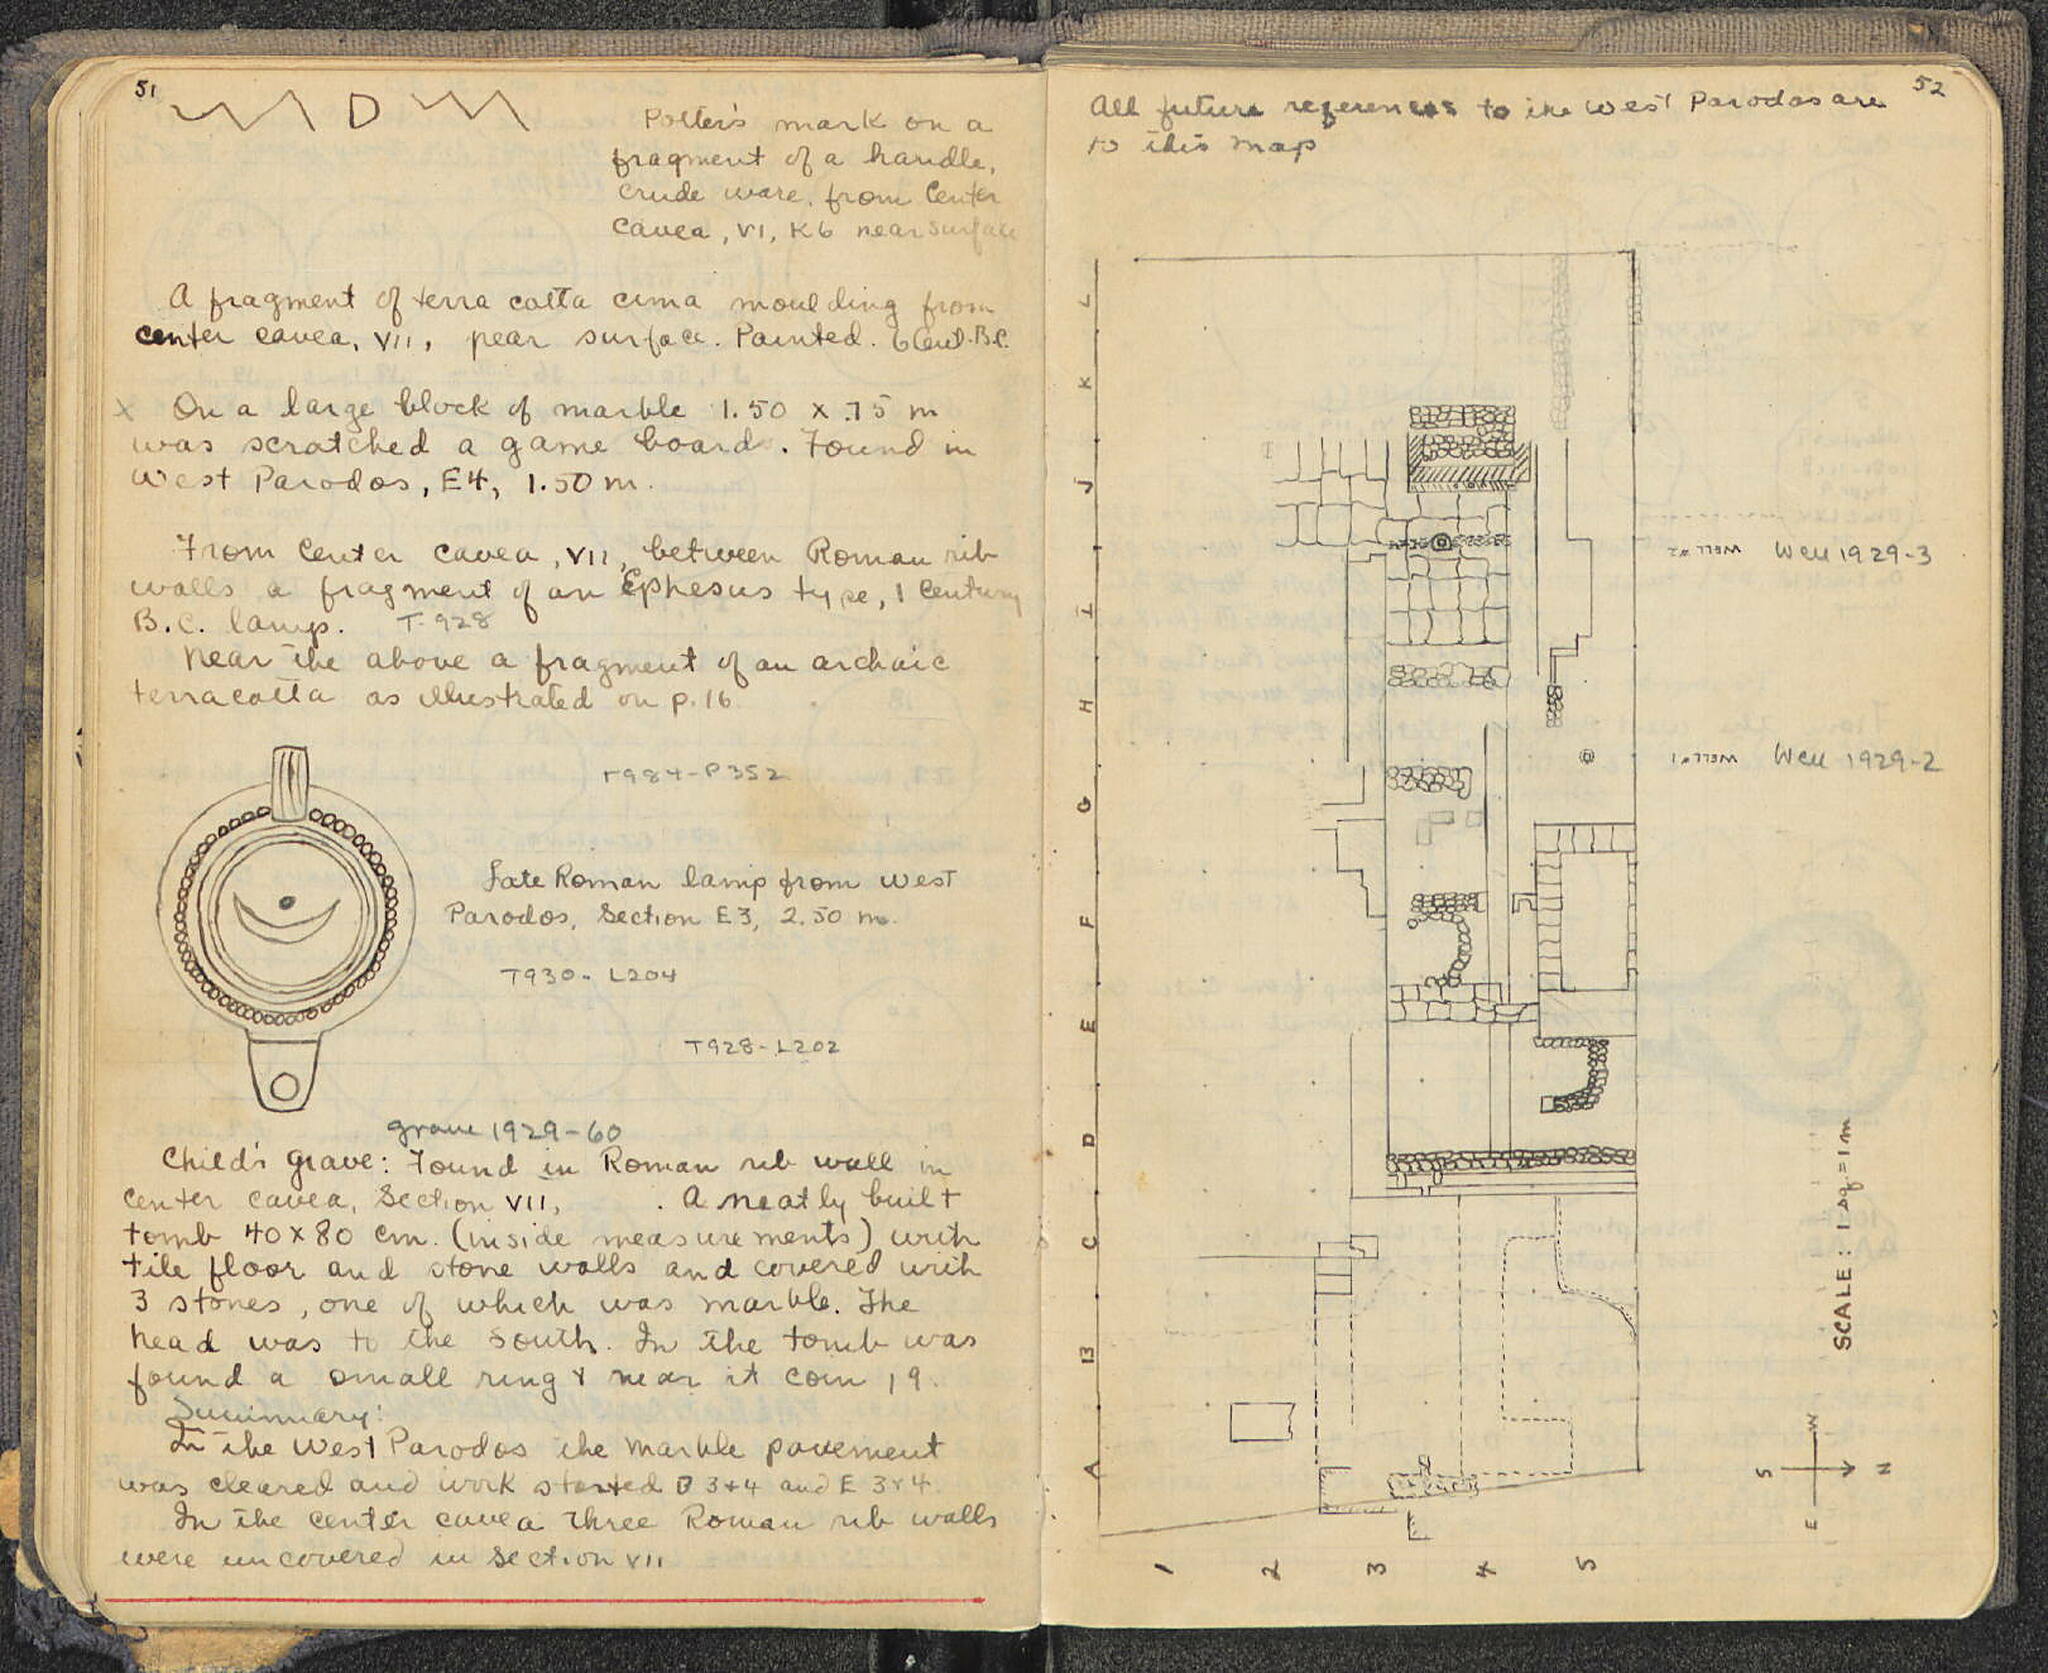 51
Potter's mark on a
fragment of a handle,
crude ware, from Center
Cavea, VI, K6 near surface
A fragment of terra cotta cima moulding from
center cavea, VII, near surface. Painted. 6 Cent. B.C.
x On a large block of marble 1.50 x .75 m
was scratched a game board. Found in
West Parodos, E4, 1.50 m.
From Center Cavea, VII, between Roman rib
walls a fragment of an Ephesus type, 1 Century
B.C. lamp. T-928
Near the above a fragment of an archaic
terracotta as illustrated on p. 16
T984-P352
Late Roman lamp from West
Parodos, Section E3, 2.50 m.
T930-L204
T928-L202
grave 1929-60
Child's Grave: Found in Roman rib wall in
center cavea, Section VII, . A neatly built
tomb 40 x 80 cm. (inside measurements) with
tile floor and stone walls and covered with
3 stones, one of which was marble. The
head was to the south. In the tomb was
found a small ring & near it coin 19.
Summary:
In the West Parodos the marble pavement
was cleared and work started D 3+4 and E 3+4.
In the center cavea three Roman rib walls
were uncovered in section VII
52
All future references to the West Parodos are
to this map
L
K
J
I
H
G
F
E
D
C
B
A
1
2
3
4
5
WELL #2 Well 1929-3
WELL #1 Well 1929-2
SCALE: 1 sq. = 1 m
W
S
N
E